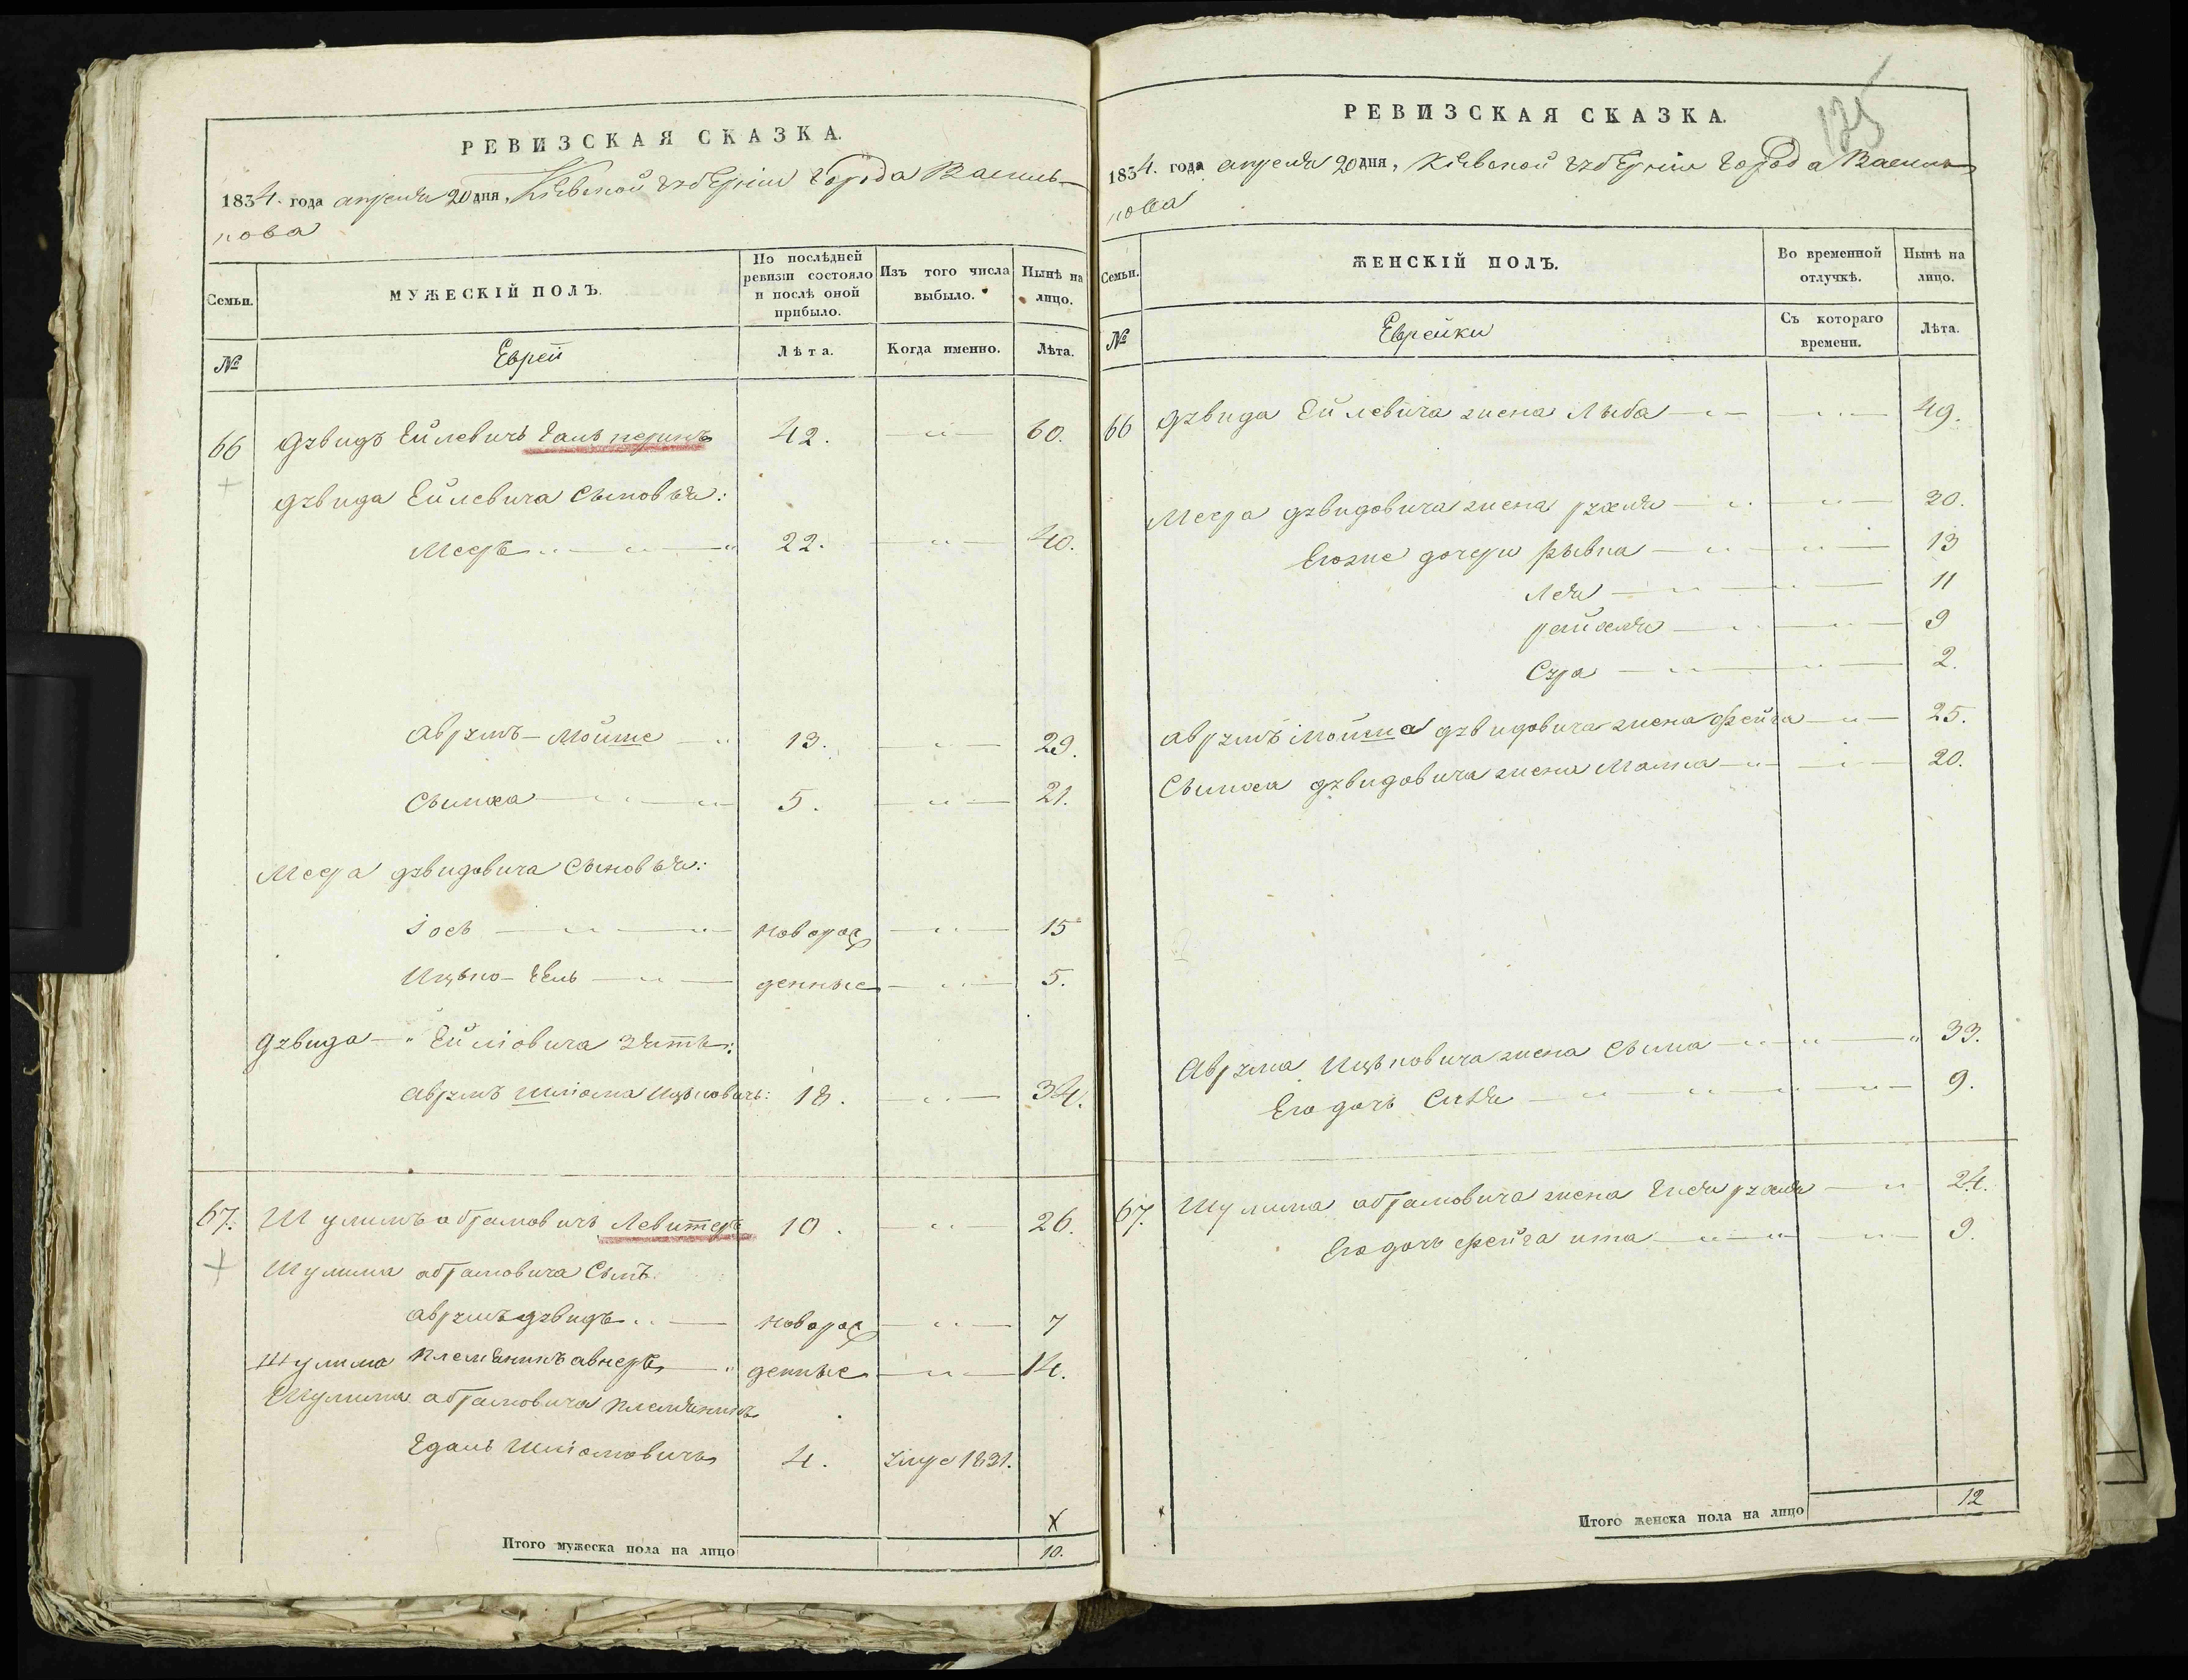 РЕВИЗСКАЯ СКАЗКА.
1834. года апреля 20 дня, Кіевской губерніи города Василь-
кова
Семьи.
МУЖЕСКІЙ ПОЛЪ.
По послѣдней ревизіи состояло и послѣ оной прибыло.
Изъ того числа выбыло.
Нынѣ на лицо.
№
Еврей
Лѣта.
Когда именно.
Лѣта.
66 Дувидъ Ейлевичъ Гальперинъ 42. 60.
Дувида Ейлевича сыновья:
Мееръ 22. 40.
Аврумъ-Мойше 13. 29.
Сымха 5. 21.
Меера Дувидовича сыновья:
Іосъ новорож 15
Ицько- денные 5.
Дувида Ейліовича зять:
Аврумъ Шліома Ицьковичъ: 18. 34.
67. Шулимъ Абрамовичъ Левитеръ 10. 26.
Шулима Абрамовича сынъ
Аврумъ Дувидъ новорож 7
Шулима племеникъ Авнеръ денные 14.
Шулима Абрамовича племяникъ
Шліомовичъ 4. умре 1821.
Итого мужеска пола на лицо 10.
РЕВИЗСКАЯ СКАЗКА.
125
1834. года апреля 20 дня, Кіевской губерніи города Василь
кова
Семьи.
ЖЕНСКІЙ ПОЛЪ.
Во временной отлучкѣ.
Нынѣ на лицо.
№
Еврейки
Съ котораго времени.
Лѣта.
66 Дувида Ейлевича жена Лыба 49.
Меера Дувидовича жена Рухля 30.
Егоже дочери Рывка 13
Лея 11
Рейхля 9
Сура 2.
Аврумъ Мойша Дувидовича жена Фейга 25.
Сымха Дувидовича жена Малка 20.
Аврума Ицьковича жена Сыма 33.
Его дочь 9.
67. Шулима Абрамовича жена Рухля 24.
Его дочь Фейга Ита 9.
Итого женска пола на лицо 12